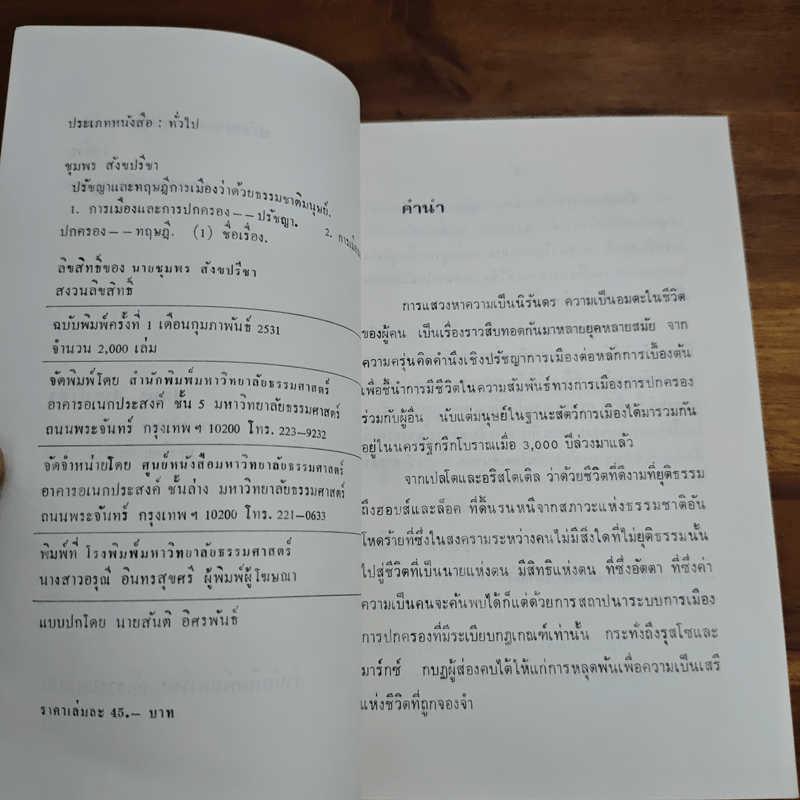 ประเภทหนังสือ : ทั่วไป
ชุมพร สังขปรีชา
ปรัชญาและทฤษฎีการเมืองว่าด้วยธรรมชาติมนุษย์.
1. การเมืองและการปกครอง -- ปรัชญา. 2. การเมือง
ปกครอง -- ทฤษฎี. (1) ชื่อเรื่อง.
ลิขสิทธิ์ของ นายชุมพร สังขปรีชา
สงวนลิขสิทธิ์
ฉบับพิมพ์ครั้งที่ 1 เดือนกุมภาพันธ์ 2531
จำนวน 2,000 เล่ม
จัดพิมพ์โดย สำนักพิมพ์มหาวิทยาลัยธรรมศาสตร์
อาคารอเนกประสงค์ ชั้น 5 มหาวิทยาลัยธรรมศาสตร์
ถนนพระจันทร์ กรุงเทพฯ 10200 โทร. 223-9232
จัดจำหน่ายโดย ศูนย์หนังสือมหาวิทยาลัยธรรมศาสตร์
อาคารอเนกประสงค์ ชั้นล่าง มหาวิทยาลัยธรรมศาสตร์
ถนนพระจันทร์ กรุงเทพฯ 10200 โทร. 221-0633
พิมพ์ที่ โรงพิมพ์มหาวิทยาลัยธรรมศาสตร์
นางสาวอรุณี อินทรสุขศรี ผู้พิมพ์ผู้โฆษณา
แบบปกโดย นายสันติ อิศรพันธ์
ราคาเล่มละ 45.- บาท
คำนำ
การแสวงหาความเป็นนิรันดร ความเป็นอมตะในชีวิต
ของผู้คน เป็นเรื่องราวสืบทอดกันมาหลายยุคหลายสมัย จาก
ความครุ่นคิดคำนึงเชิงปรัชญาการเมืองต่อหลักการเบื้องต้น
เพื่อชี้นำการมีชีวิตในความสัมพันธ์ทางการเมืองการปกครอง
ร่วมกับผู้อื่น นับแต่มนุษย์ในฐานะสัตว์การเมืองได้มารวมกัน
อยู่ในนครรัฐกรีกโบราณเมื่อ 3,000 ปีล่วงมาแล้ว
จากเปลโตและอริสโตเติล ว่าด้วยชีวิตที่ดีงามที่ยุติธรรม
ถึงฮอบส์และล็อค ที่ดิ้นรนหนีจากสภาวะแห่งธรรมชาติอัน
โหดร้ายที่ซึ่งในสงครามระหว่างคนไม่มีสิ่งใดที่ไม่ยุติธรรมนั้น
ไปสู่ชีวิตที่เป็นนายแห่งตน มีสิทธิแห่งตน ที่ซึ่งอัตตา ที่ซึ่งค่า
ความเป็นคนจะค้นพบได้ก็แต่ด้วยการสถาปนาระบบการเมือง
การปกครองที่มีระเบียบกฎเกณฑ์เท่านั้น กระทั่งถึงรุสโซและ
มาร์กซ์ กบฏผู้ส่องคบไต้ให้แก่การหลุดพ้นเพื่อความเป็นเสรี
แห่งชีวิตที่ถูกจองจำ